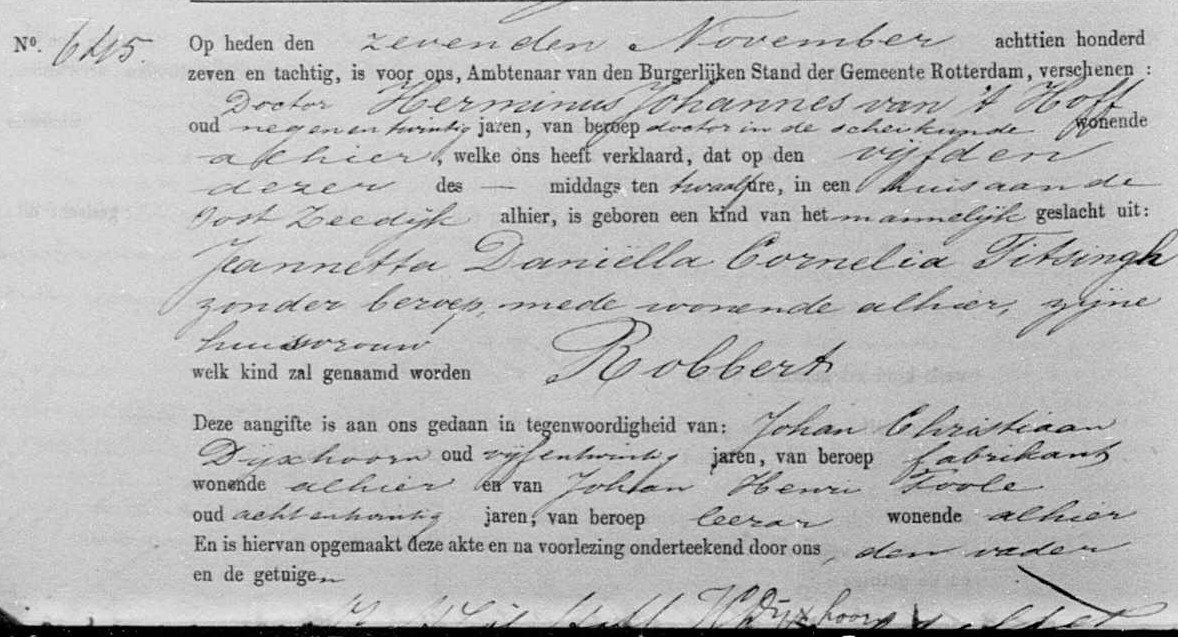 Nº. 645 Op heden den zevenden November achttien honderd
zeven en tachtig, is voor ons, Ambtenaar van den Burgerlijken Stand der Gemeente Rotterdam, verschenen:
Doctor Herminus Johannes van 't Hoff
oud negenentwintig jaren, van beroep doctor in de scheikunde wonende
alhier, welke ons heeft verklaard, dat op den vijfden
dezer des — middags ten twaalf ure, in een huis aan de
Oost Zeedijk alhier, is geboren een kind van het mannelijk geslacht uit:
Jeannetta Daniëlla Cornelia Titsingh
zonder beroep, mede wonende alhier, zijne
huisvrouw
welk kind zal genaamd worden Robbert
Deze aangifte is aan ons gedaan in tegenwoordigheid van: Johan Christiaan
Dyxhoorn oud vijfentwintig jaren, van beroep fabrikant
wonende alhier en van Johan Henri
oud achtentwintig jaren, van beroep leeraar wonende alhier
En is hiervan opgemaakt deze akte en na voorlezing onderteekend door ons, den vader
en de getuigen
Dyxhoorn